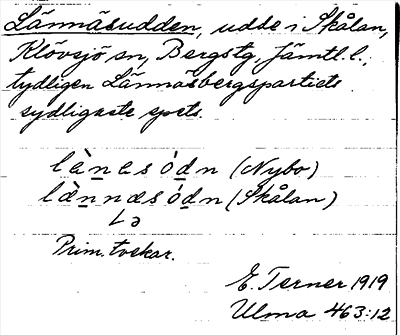 Lännäsudden, udde i Skålan,
Klövsjö sn, Bergstg, Jämtl. l.,
tydligen Lännäsbergspartiets
sydligaste spets.
lὰnεsódn (Nybo)
lὰnnæsódn (Skålan)
Lə
Prim. tvekar.
E. Terner 1919
Ulma 463:12